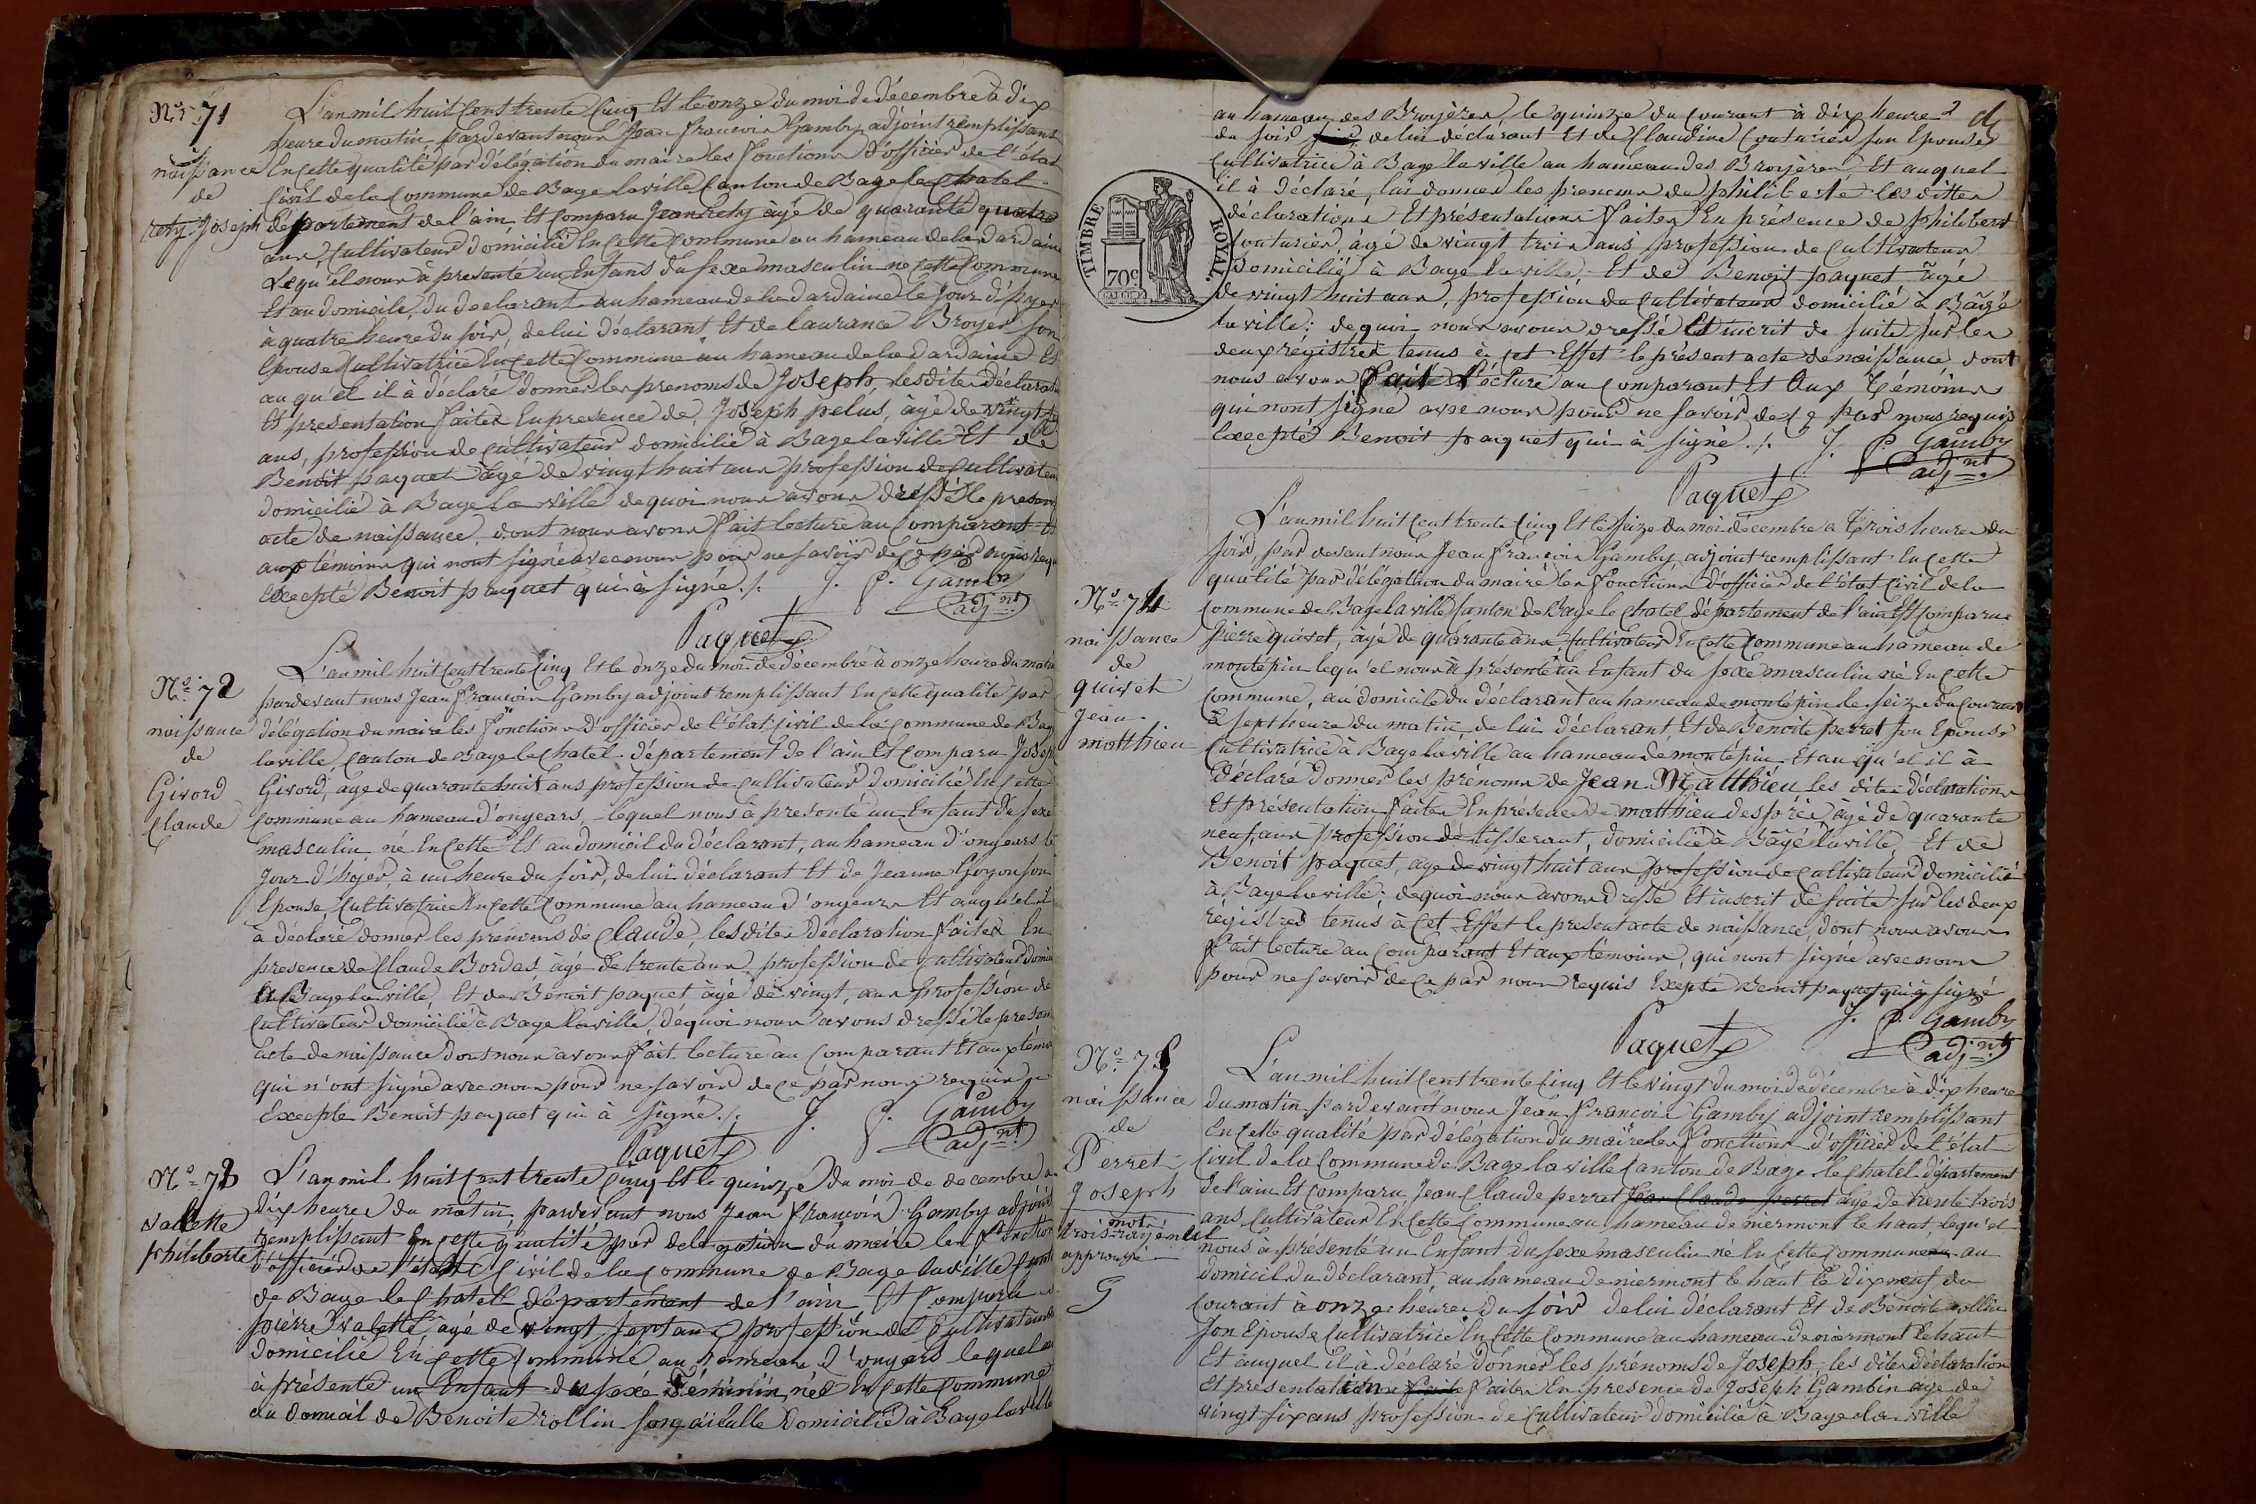 No. 71
naissance
de
rety Joseph
L'an mil huit cent trente cinq Et le onze du moi de décembre à dix
heure du matin pardevant nous Jean françois Gamby adjoint remplissant
En cette qualité par délégation du maire les fonctions d'officier de l'état
civil de la Commune de Bage la ville Canton de Bage le Chatel
département de l'ain Et comparu Jean rety âgé de quarante quatre
ans, Cultivateur domicilié En cette Commune au hameau de la dardaine
Lequ'el nous à presenté un Enfans du sexe masculin né cette Commune
Et au domicile du declarant au hameau de la dardaine le Jour d'hyer
à quatre heure du soir, de lui déclarant Et de Laurance Broyer son
Epouse Cultivatrice En cette Commune au hameau de la dardaine Et
au qu'el il à déclaré donner les prenoms de Joseph, les dites déclaration
Et presentation faites En presence de Joseph pelus, âgé de vingt
ans, profession de cultivateur domicilié à Bage la ville Et de
Benoit paquet âgé de vingt huit ans profession de cultivateur
domicilié à Bage la ville de quoi nous avons dressé le present
acte de naissance, dont nous avons fait lecture au Comparant Et
aux témoins qui nont signé avec nous pour ne savoir de ce par nous requis
Excepté Benoit paquet qui à signé ./. J. P. Gamby
adj.nt
Paquet
No. 72
naissance
de
Givord
Claude
L'an mil huit cent trente cinq Et le onze du moi de décembre à onze heure du matin
pardevant nous Jean françois Gamby adjoint remplissant En cette qualité par
délégation du maire les fonctions d'officier de l'état civil de la Commune de Bage
la ville, canton de Bage le Chatel département de l'ain Et comparu Joseph
Givord, age de quarante huit ans profession de cultivateur domicilié En cette
Commune au hameau d'ongears, lequel nous à presenté un Enfant du sexe
masculin né En cette Et au domicil du déclarant, au hameau d'ongears le
Jour d'hyer, à un heure du soir, de lui déclarant Et de Jeanne Goyon son
Epouse, Cultivatrice En cette Commune au hameau d'ongears Et auqu'el il
à déclaré donner les prenoms de Claude, les dites déclaration faites En
presence de Claude Bordas, âgé de trente ans profession de cultivateur domicilié
à Bage la ville, Et de Benoit paquet âgé de vingt, ans profession de
cultivateur domicilié à Bage la ville, de quoi nous avons dressé le present
acte de naissance dont nous avons fait lecture au comparant Et aux témoins
qui n'ont signé avec nous pour ne savoir de ce par nous requis
Excepte Benoit paquet qui à signé ./. J. P. Gamby
adj.nt
Paquet
No. 73
valette
philiberte
L'an mil huit cent trente cinq Et le quinze du moi de decembre à
dix heures du matin, pardevant nous Jean françois Gamby adjoint
remplissant En cette qualité par délégation du maire les fonctions
d'officier de l'état Civil de la Commune de Bage la ville Canton
de Bage le Chatel département de l'ain Et Comparu
pierre valette, âgé de vingt sept ans profession de Cultivateur
domicilié En cette Commune au hameau d'ongears lequel
à présenté un Enfant du sexe féminin, née En cette Commune
au domicil de Benoite rollin domicilié à Bage la ville
au hameau des Broyères, le quinze du courant à dix heures
du soir de lui déclarant Et de Claudine Couturier son Epouse
Cultivatrice à Bage la ville au hameau des Broyères, Et auquel
il à déclaré, lui donner les prenoms de philiberte les dittes
déclarations Et présentations faites En présence de philibert
Couturier, âgé de vingt trois ans profession de Cultivateur
Domicilié à Bage la ville, Et de Benoit paquet âgé
de vingt huit ans, profession de Cultivateur domicilié à Bâgé
la ville; de quoi nous avons dressé Et inscrit de suite sur les
deux régistres tenus à cet Effet le présent acte de naissance dont
nous avons fait Lecture au comparant Et Aux témoins
qui nont signé avec nous pour ne savoir de ce par nous requis
Excepté Benoit paquet qui à signé ./. J. P. Gamby
adj.nt
Paquet
TIMBRE ROYAL
70c
No. 74
naissance
de
quivet
Jean
matthieu
L'an mil huit cent trente cinq Et le seize du moi décembre à trois heures du
soir, par devant nous Jean françois Gamby, adjoint remplissant En cette
qualité par délégation du maire les fonctions d'officier de l'état civil de la
commune de Bage la ville Canton de Bage le Chatel département de l'ain Est comparu
pierre quivet, âgé de quarante ans, Cultivateur En cette Commune au hameau de
montépin lequ'el nous à presenté un Enfant du sexe masculin né En cette
Commune, au domicile du déclarant au hameau de montépin le seize du Courant
à sept heure du matin, de lui déclarant, Et de Benoite perret son Epouse
Cultivatrice à Bage la ville au hameau de montépin Et au qu'el il à
déclaré donner les prénoms de Jean Matthieu les dites déclarations
Et présentation faites En présence de matthieu despré âgé de quarante
neuf, ans profession de tisserant, domicilié à Bâgé la ville, Et de
Benoit paquet, âgé de vingt huit ans profession de cultivateur domicilié
à Bage la ville; de quoi nous avons dressé Et inscrit de suite sur les deux
régistres tenus à cet Effet le present acte de naissance, dont nous avons
fait lecture au Comparant Et aux témoins, qui nont signé avec nous
pour ne savoir de ce par nous requis Excepté Benoit paquet qui à signé
J. P. Gamby
adj.nt
Paquet
No. 75
naissance
de
Perret
Joseph
trois mot rayé nul
approuvé
G
L'an mil huit cent trente cinq Et le vingt du moi de décembre à dix heure
du matin pardevant nous Jean françois Gamby adjoint remplissant
En cette qualité par délégation du maire les fonctions d'officier de l'état
civil de la Commune de Bage la ville Canton de Bage le Chatel département
de l'ain Et comparu, Jean Claude perret Jean Claude perret age de trente trois
ans cultivateur En cette commune au hameau de niermont le haut lequ'el
nous à présenté un Enfant du sexe masculin né En cette Commune au
domicil du déclarant, au hameau de niermont le haut le dix neuf du
courant à onze heures du soir de lui déclarant Et de Benoite rollin
son Epouse Cultivatrice En cette Commune au hameau de niermont le haut
Et auquel il à déclaré donner les prénoms de Joseph, les dites déclaration
Et presentation faites En presence de Joseph Gambin age de
vingt six ans profession de cultivateur domicilié à Bage la ville